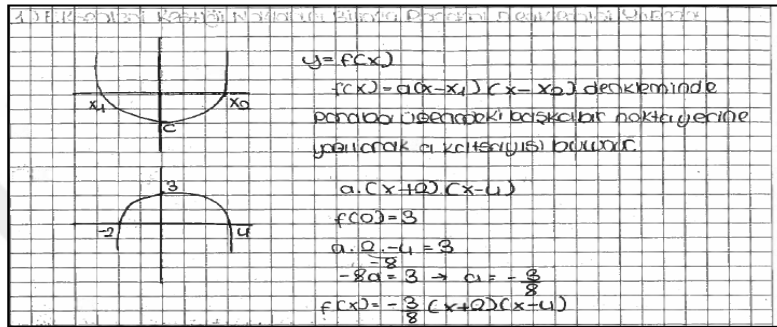 1) X Eksenini Kestiği Noktaları Bilinen Parabol Denklemini Yazma
x₁ x₂
c
y = f(x)
f(x) = a(x-x₁) (x-x₂) denkleminde
parabol üzerindeki başka bir nokta yerine
yazılarak a katsayısı bulunur.
3
-2 4
a.(x+2).(x-4)
f(0)=3
a.2.-4 = 3
-8
-8a = 3 → a = -3/8
f(x) = -3/8 (x+2)(x-4)